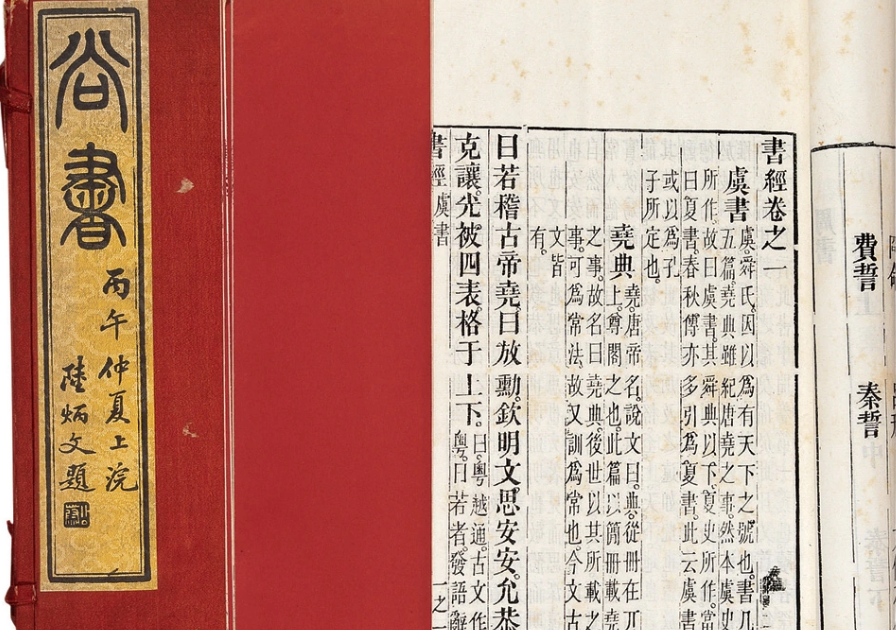 尚書
丙午仲夏上浣
陸炳文題
費誓
秦誓
書經卷之一
虞書 虞。舜氏。因以爲有天下之號也。書凡
五篇。堯典雖紀唐堯之事。然本虞史
所作。故曰虞書。其舜典以下。夏史所作。當
曰夏書。春秋傳亦多引爲夏書。此云虞書
或以爲孔
子所定也。
堯典 堯。唐帝名。說文曰。典。從冊在丌
上。尊閣之也。此篇以簡冊載堯
之事。故名曰堯典。後世以其所載之
事。可爲常法。故又訓爲常也。今文古
文皆
有。
曰若稽古帝堯。曰放勳。欽明文思安安。允恭
克讓。光被四表。格于上下。曰。粵。越通。古文作
粵。曰若者。發語辭
書經 虞書 一之一